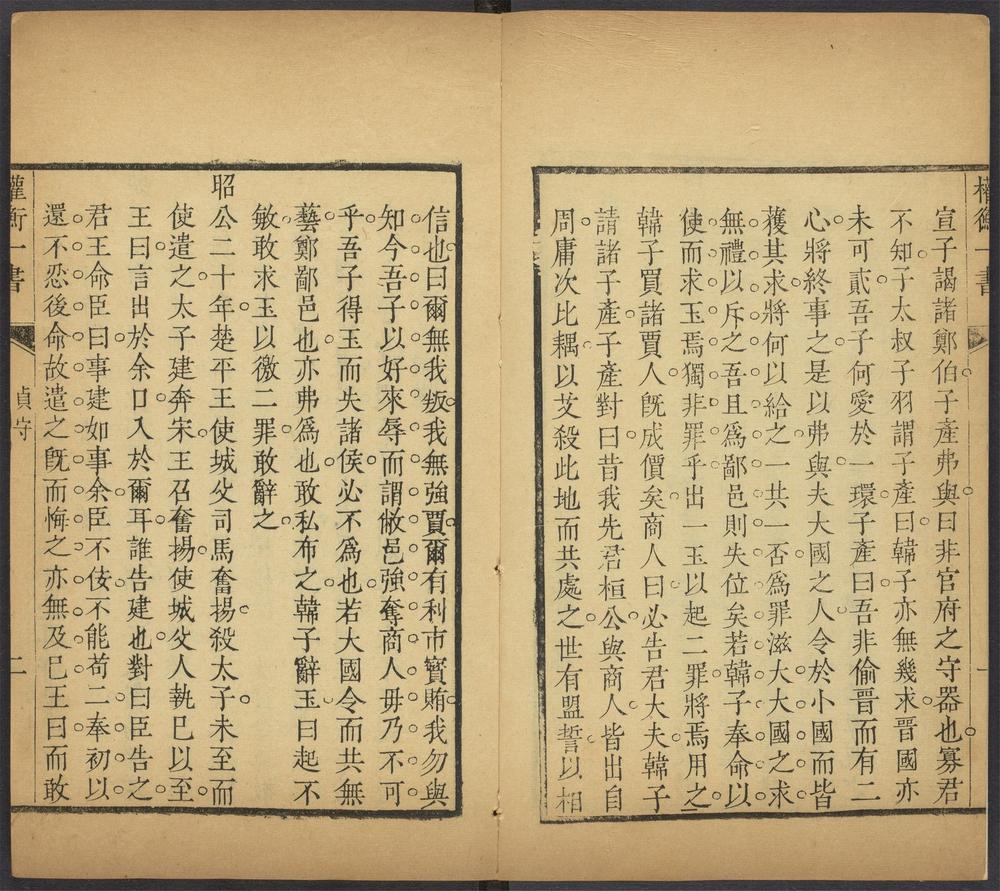 權衡一書
一
宣子謁諸鄭伯子產弗與曰非官府之守器也寡君
不知子太叔子羽謂子產曰韓子亦無幾求晉國亦
未可貳吾子何愛於一環子產曰吾非偷晉而有二
心將終事之是以弗與夫大國之人令於小國而皆
獲其求將何以給之一共一否爲罪滋大大國之求
無禮以斥之吾且爲鄙邑則失位矣若韓子奉命以
使而求玉焉獨非罪乎出一玉以起二罪將焉用之
韓子買諸賈人旣成價矣商人曰必告君大夫韓子
請諸子產子產對曰昔我先君桓公與商人皆出自
周庸次比耦以艾殺此地而共處之世有盟誓以相
信也曰爾無我叛我無強賈爾有利市寳賄我勿與
知今吾子以好來辱而謂敝邑強奪商人毋乃不可
乎吾子得玉而失諸侯必不爲也若大國令而共無
藝鄭鄙邑也亦弗爲也敢私布之韓子辭玉曰起不
敏敢求玉以徼二罪敢辭之
昭公二十年楚平王使城父司馬奮揚殺太子未至而
使遣之太子建奔宋王召奮揚使城父人執已以至
王曰言出於余口入於爾耳誰告建也對曰臣告之
君王命臣曰事建如事余臣不佞不能苟二奉初以
還不忍後命故遣之旣而悔之亦無及已王曰而敢
權衡一書
貞守
二